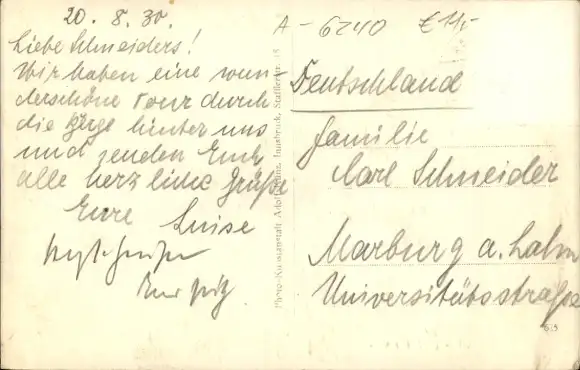 20. 8. 30.
Liebe Schneiders!
Wir haben eine wun-
derschöne Tour durch
die Berge hinter uns
und senden Euch
alle herzliche Grüße
Eure Luise
A-6240 € 11,-
Deutschland
Familie
Karl Schneider
Marburg a. Lahn
Universitätsstraße
Photo-Kunstanstalt Innsbruck, Staffler